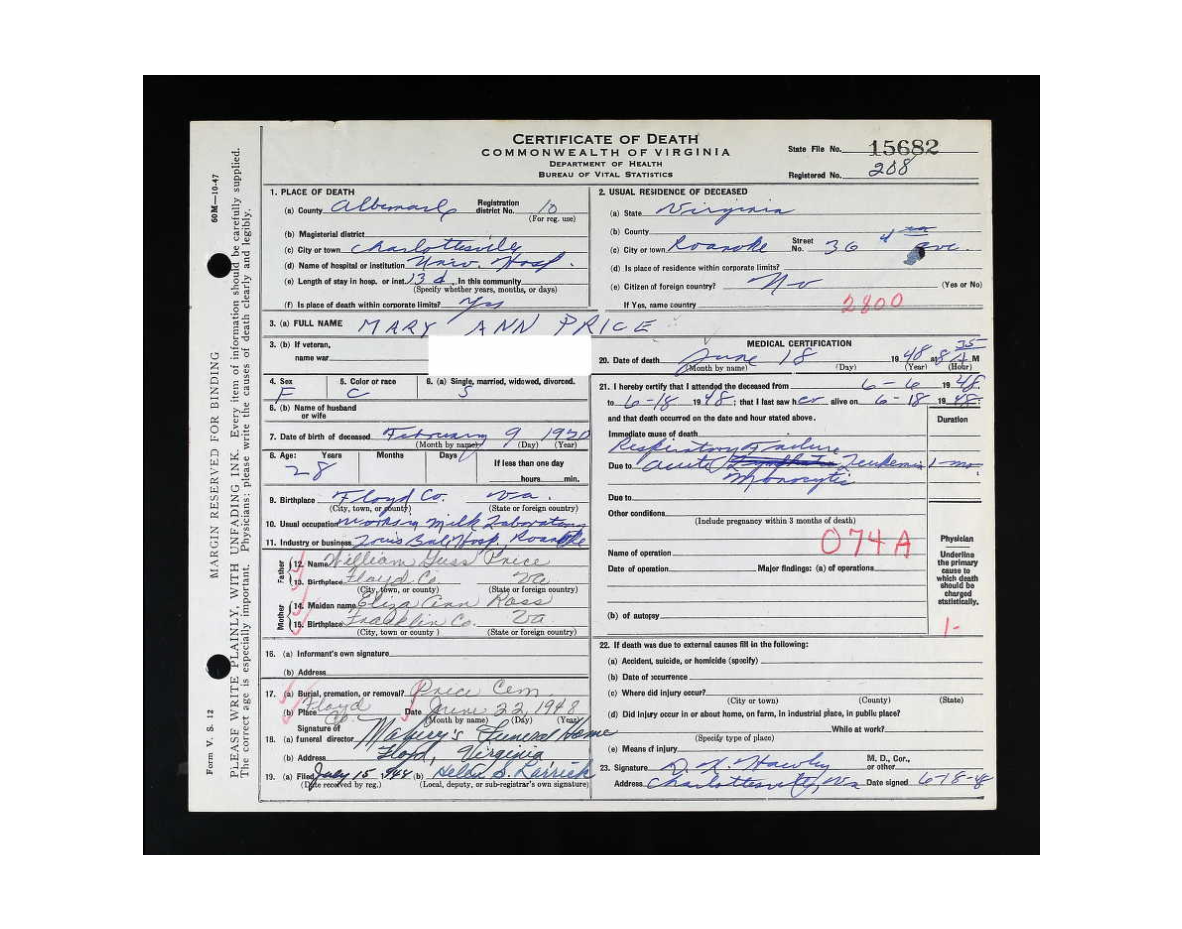 CERTIFICATE OF DEATH
COMMONWEALTH OF VIRGINIA
DEPARTMENT OF HEALTH
BUREAU OF VITAL STATISTICS
State File No. 15682
Registered No. 208
1. PLACE OF DEATH
(a) County Albemarle Registration district No. 10
(For reg. use)
(b) Magisterial district
(c) City or town Charlottesville
(d) Name of hospital or institution Univ. Hosp.
(e) Length of stay in hosp. or inst. 13 d. In this community
(Specify whether years, months, or days)
(f) Is place of death within corporate limits? Yes
2. USUAL RESIDENCE OF DECEASED
(a) State Virginia
(b) County
(c) City or town Roanoke Street No. 36 4 Ave.
(d) Is place of residence within corporate limits?
(e) Citizen of foreign country? No (Yes or No)
If Yes, name country
2800
3. (a) FULL NAME MARY ANN PRICE
3. (b) If veteran,
name war
4. Sex F
5. Color or race C
6. (a) Single, married, widowed, divorced. S
6. (b) Name of husband
or wife
7. Date of birth of deceased February 9 1920
(Month by name) (Day) (Year)
8. Age: Years 28 Months Days If less than one day
hours min.
9. Birthplace Floyd Co. Va.
(City, town, or county) (State or foreign country)
10. Usual occupation Milk Laboratory
11. Industry or business Hosp, Roanoke
Father
12. Name William Guss Price
13. Birthplace Floyd Co. Va
(City, town, or county) (State or foreign country)
Mother
14. Maiden name Eliza Ann Ross
15. Birthplace Franklin Co. Va
(City, town or county) (State or foreign country)
16. (a) Informant's own signature
(b) Address
17. (a) Burial, cremation, or removal? Price Cem
(b) Place Floyd Co. Date June 22 1948
(Month by name) (Day) (Year)
18. (a) Signature of funeral director Maberry's Funeral Home
(b) Address Floyd, Virginia
19. (a) Filed July 15 1948 (b)
(Date received by reg.) (Local, deputy, or sub-registrar's own signature)
MEDICAL CERTIFICATION
20. Date of death June 18 1948 at 8 35 A M
(Month by name) (Day) (Year) (Hour)
21. I hereby certify that I attended the deceased from 6-6 1948
to 6-18 1948; that I last saw her alive on 6-18 1948
and that death occurred on the date and hour stated above.
Duration
Immediate cause of death
Respiratory Failure
Due to acute Leukemia 1-mo.
Monocytic
Due to
Other conditions
(Include pregnancy within 3 months of death)
074A
Name of operation
Date of operation Major findings: (a) of operations
(b) of autopsy
Physician
Underline
the primary
cause to
which death
should be
charged
statistically.
1-
22. If death was due to external causes fill in the following:
(a) Accident, suicide, or homicide (specify)
(b) Date of occurrence
(c) Where did injury occur?
(City or town) (County) (State)
(d) Did injury occur in or about home, on farm, in industrial place, in public place?
While at work?
(Specify type of place)
(e) Means of injury
23. Signature M. D., Cor., or other
Address Charlottesville, Va Date signed 6-18-48
60M—10-47
MARGIN RESERVED FOR BINDING
PLEASE WRITE PLAINLY, WITH UNFADING INK. Every item of information should be carefully supplied.
The correct age is especially important. Physicians: please write the causes of death clearly and legibly.
Form V. S. 12